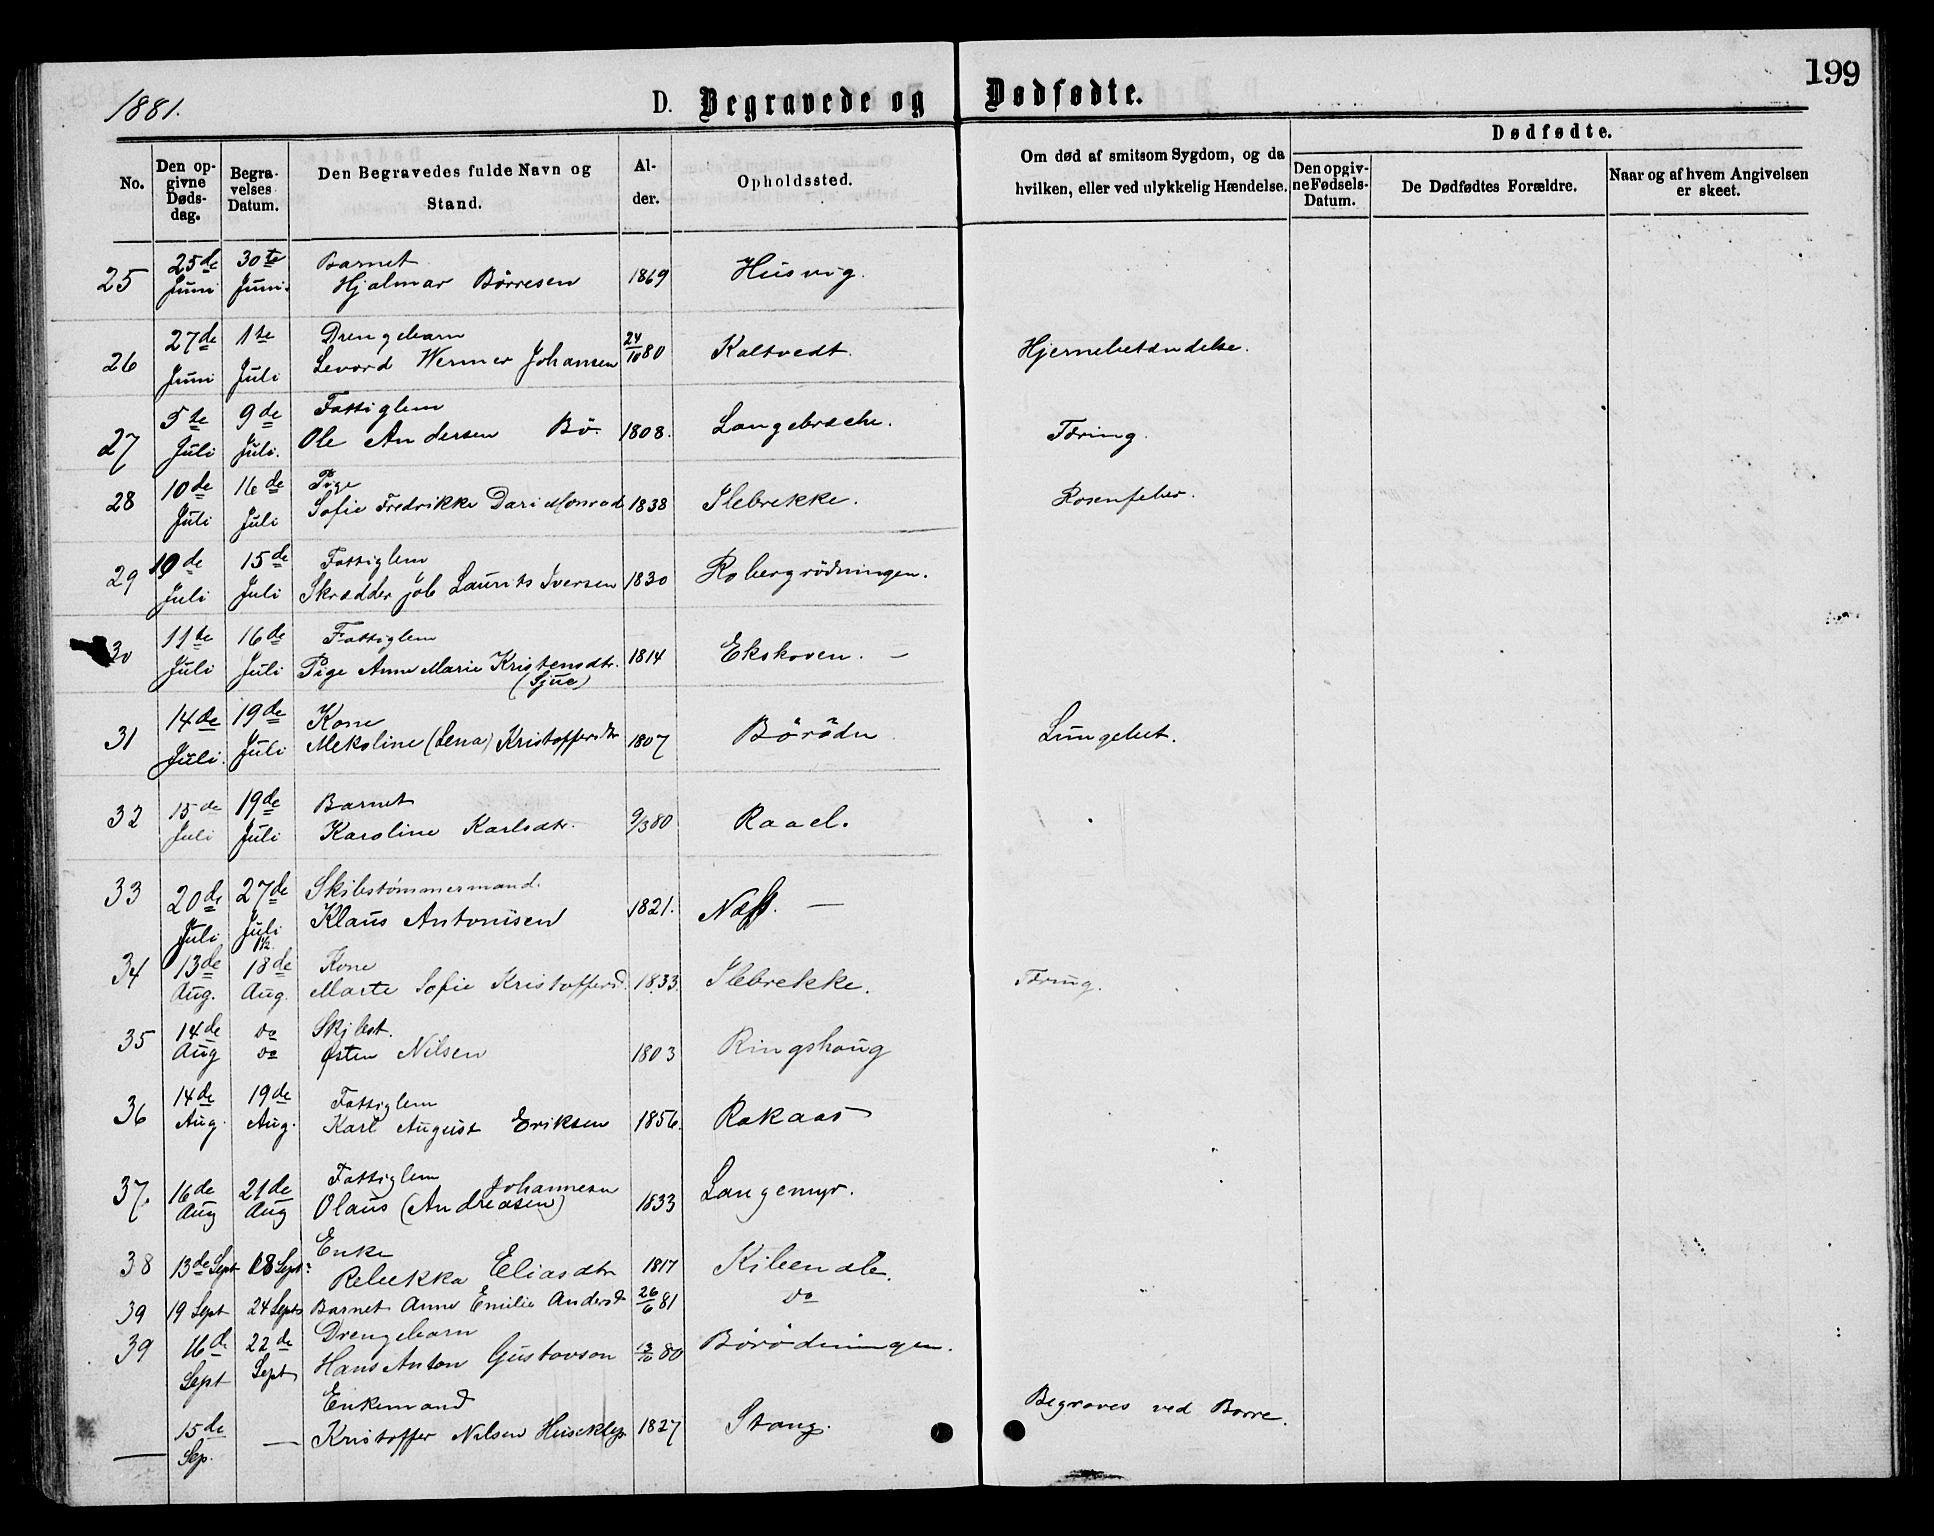 199
1881.
D. Begravede og Dødfødte.
No.
Den opgivne Dødsdag.
Begravelses Datum.
Den Begravedes fulde Navn og Stand.
Alder.
Opholdssted.
Om død af smitsom Sygdom, og da hvilken, eller ved ulykkelig Hændelse.
Dødfødte.
Den opgivne Fødsels-Datum.
De Dødfødtes Forældre.
Naar og af hvem Angivelsen er skeet.
25 25de Juni 30te Juni. Barnet Hjalmar Börresen 1869 Husvig.
26 27de Juni 1te Juli Drengebarn Levord Werner Johansen 24/10 80 Koltvedt. Hjernebetændelse.
27 5te Juli 9de Juli. Fattiglem Ole Andersen Bö. 1808. Langebrække. Tæring.
28 10de Juli 16de Juli Pige Sofie Fredrikke Monrad 1838 Ilebrekke. Rosenfeber.
29 10de Juli 15de Juli Fattiglem Skrædder Job Laurits Iversen 1830 Robergrödningen.
30 11te Juli 16de Juli Fattiglem Pige Anne Marie Kristensdtr. (Sjue) 1814 Ekskoven. —
31 14de Juli. 19de Juli Kone Mekoline (Lena) Kristoffersdtr 1807 Börödn Lungebet.
32 15de Juli 19de Juli Barnet Karoline Karlsdtr. 9/3 80 Raael.
33 20de Juli 27de Juli Skibstömmermand. Klaus Antonisen 1821. Næss. —
34 13de Aug. 18de Aug. Kone Marte Sofie Kristoffersd. 1833. Ilebrekke. Tæring.
35 14de Aug do do Skibst. Østen Nilsen 1803 Ringshaug
36 14de Aug. 19de Aug. Fattiglem Karl August Eriksen 1856. Rakaas
37. 16de Aug 21de Aug Fattiglem Johannesen Olaus (Andreasen) 1833 Langemyr.
38 13de Sept 18 Sept. Enke Rebekka Eliasdtr 1817 Kileendle.
39 19 Sept 24 Sept Barnet Anne Emilie Andersd 26/6 81 do
39 16de Sept 22de Sept Drengebarn Hans Anton Gustavson 80 Börödningen.
— 15de Sep. — Enkemand Kristoffer Nilsen Huseklep 1827 Stang. Begraves ved Borre.